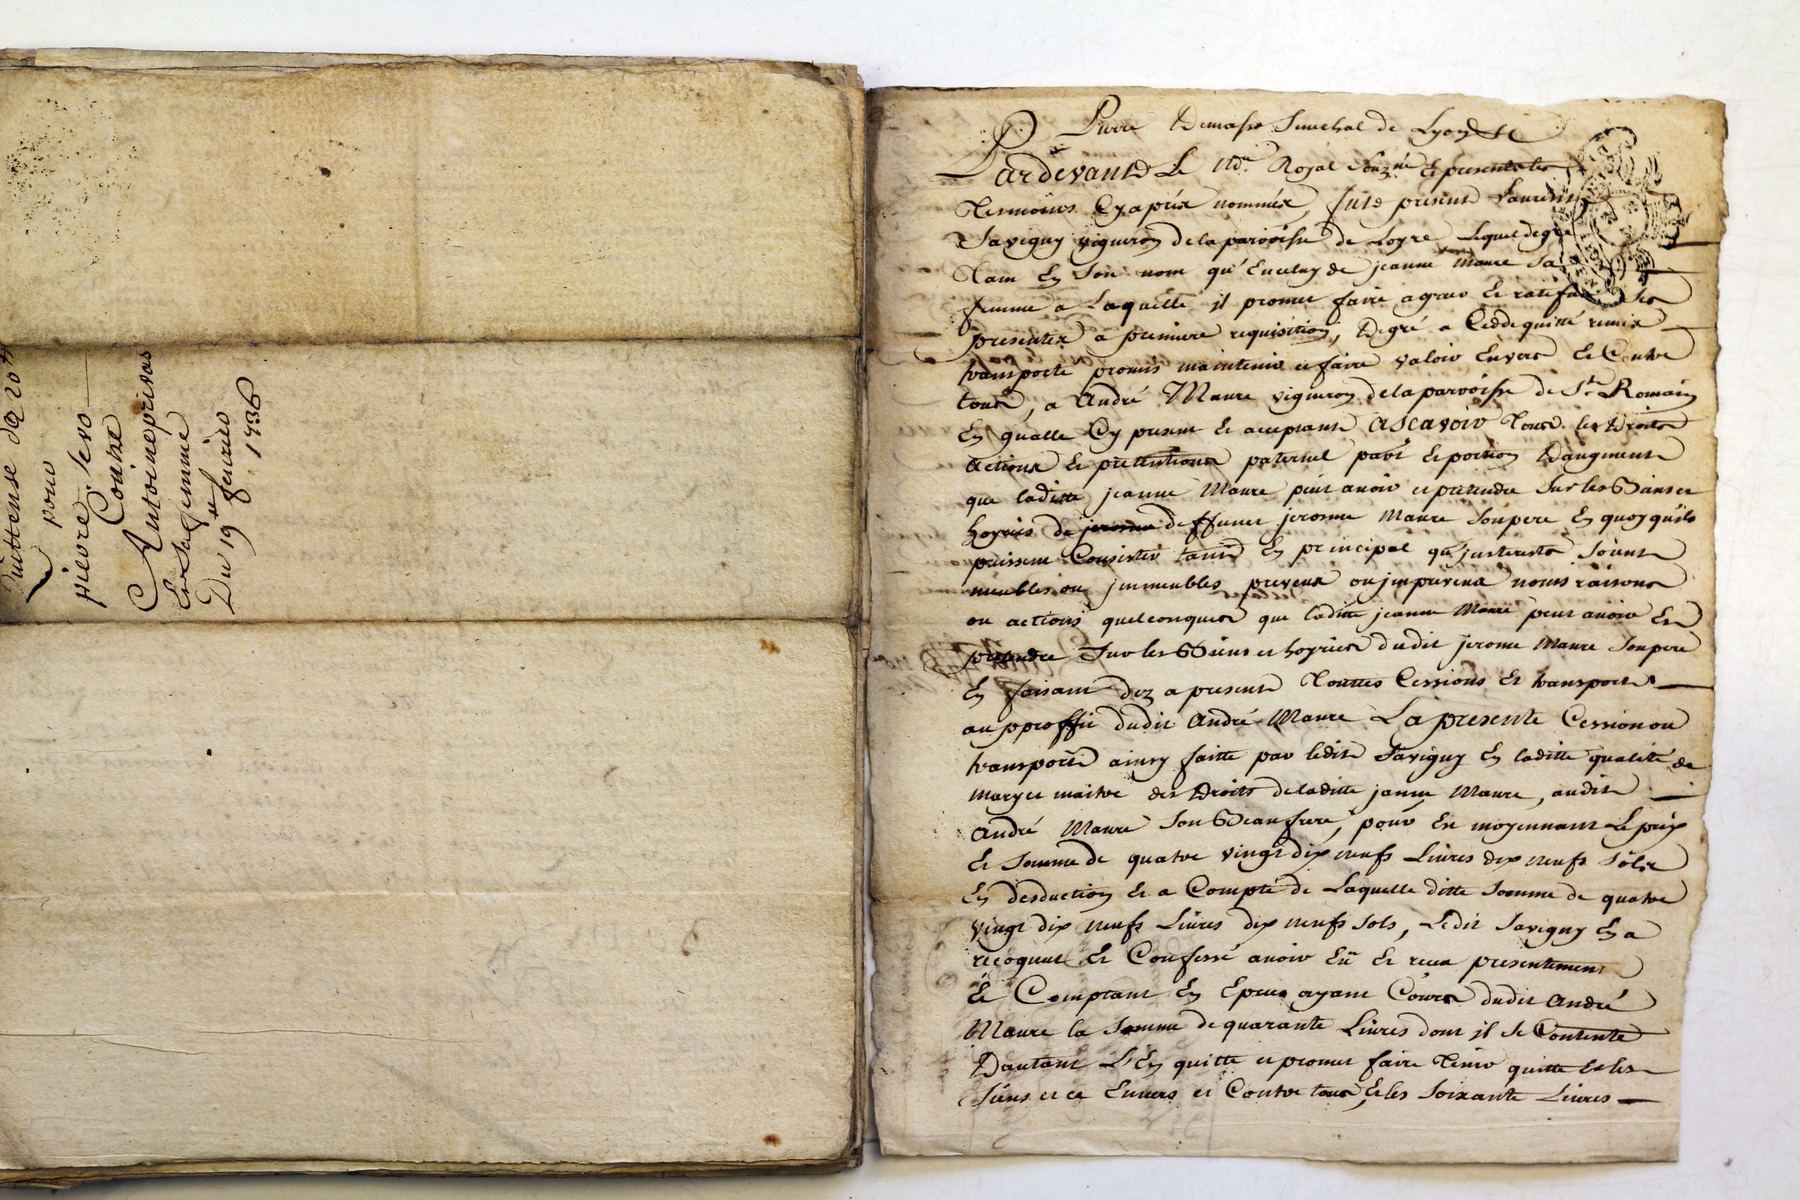 quittense de 20 ₶
pour
pierre sevo
Contre
Antoine privas
Et Sa femme
Du 19e fevrier
1736
Pierre Demasso Senechal de Lyon &c
Pardevant Le No.re Royal Souz.né Et presents les
Tesmoins Cy aprés nommés, fut present Laurent
Savigny vigneron de la parroisse de Loyre Lequel de gré
Tam En Son nom qu'En celuy de jeanne Maure Sa
femme a Laquelle il promet faire agreer Et ratifier Les
presentes a premiere requisition, De gré a Ceddé quitté remis
transporté promis maintenir et faire valoir Envers Et Contre
tous, a André Maure vigneron de la parroisse de St Romain
En qualle Cy present Et aceptant ASCavoir Tous les Droits
Actions Et prettentions paternel part Et portion Daugment
que laditte jeanne Maure peut avoir et pretendre Sur les Biens et
hoyries de jerosme deffunct jerosme Maure Son pere En quoy quils
puissent Consister tant En principal qu'jnterests Soient
meubles ou jmmeubles preveus ou jmpreveus noms raisons
ou actions quelconques que laditte jeanne Maure peut avoir Et
pretendre Sur les Biens et hoyries dudit jerome Maure Son pere
En faisant dez a present Touttes Cessions Et transports
au pproffit dudit André Maure La presente Cession ou
transport ainsy faitte par ledit Savigny En laditte qualité de
mary et maitre des Droits de laditte janne Maure, audit
André Maure Son Beaufrere, pour En moyennant Le prix
Et Somme de quatre vingt dix neufs Livres dix neufs Sols
En desduction Et a Compte de Laquelle ditte Somme de quatre
vingt dix neufs Livres dix neufs Sols, Ledit Savigny En a
recognut Et Confessé avoir Eü Et receu presentement
Et Comptant En Especes ayant Cours dudit André
Maure la Somme de quarante Livres dont il Se Contente
Dautant L'En quitte et promet faire Tenir quitte Et les
Siens et ce Envers et Contre tous, Et les Soixante Livres